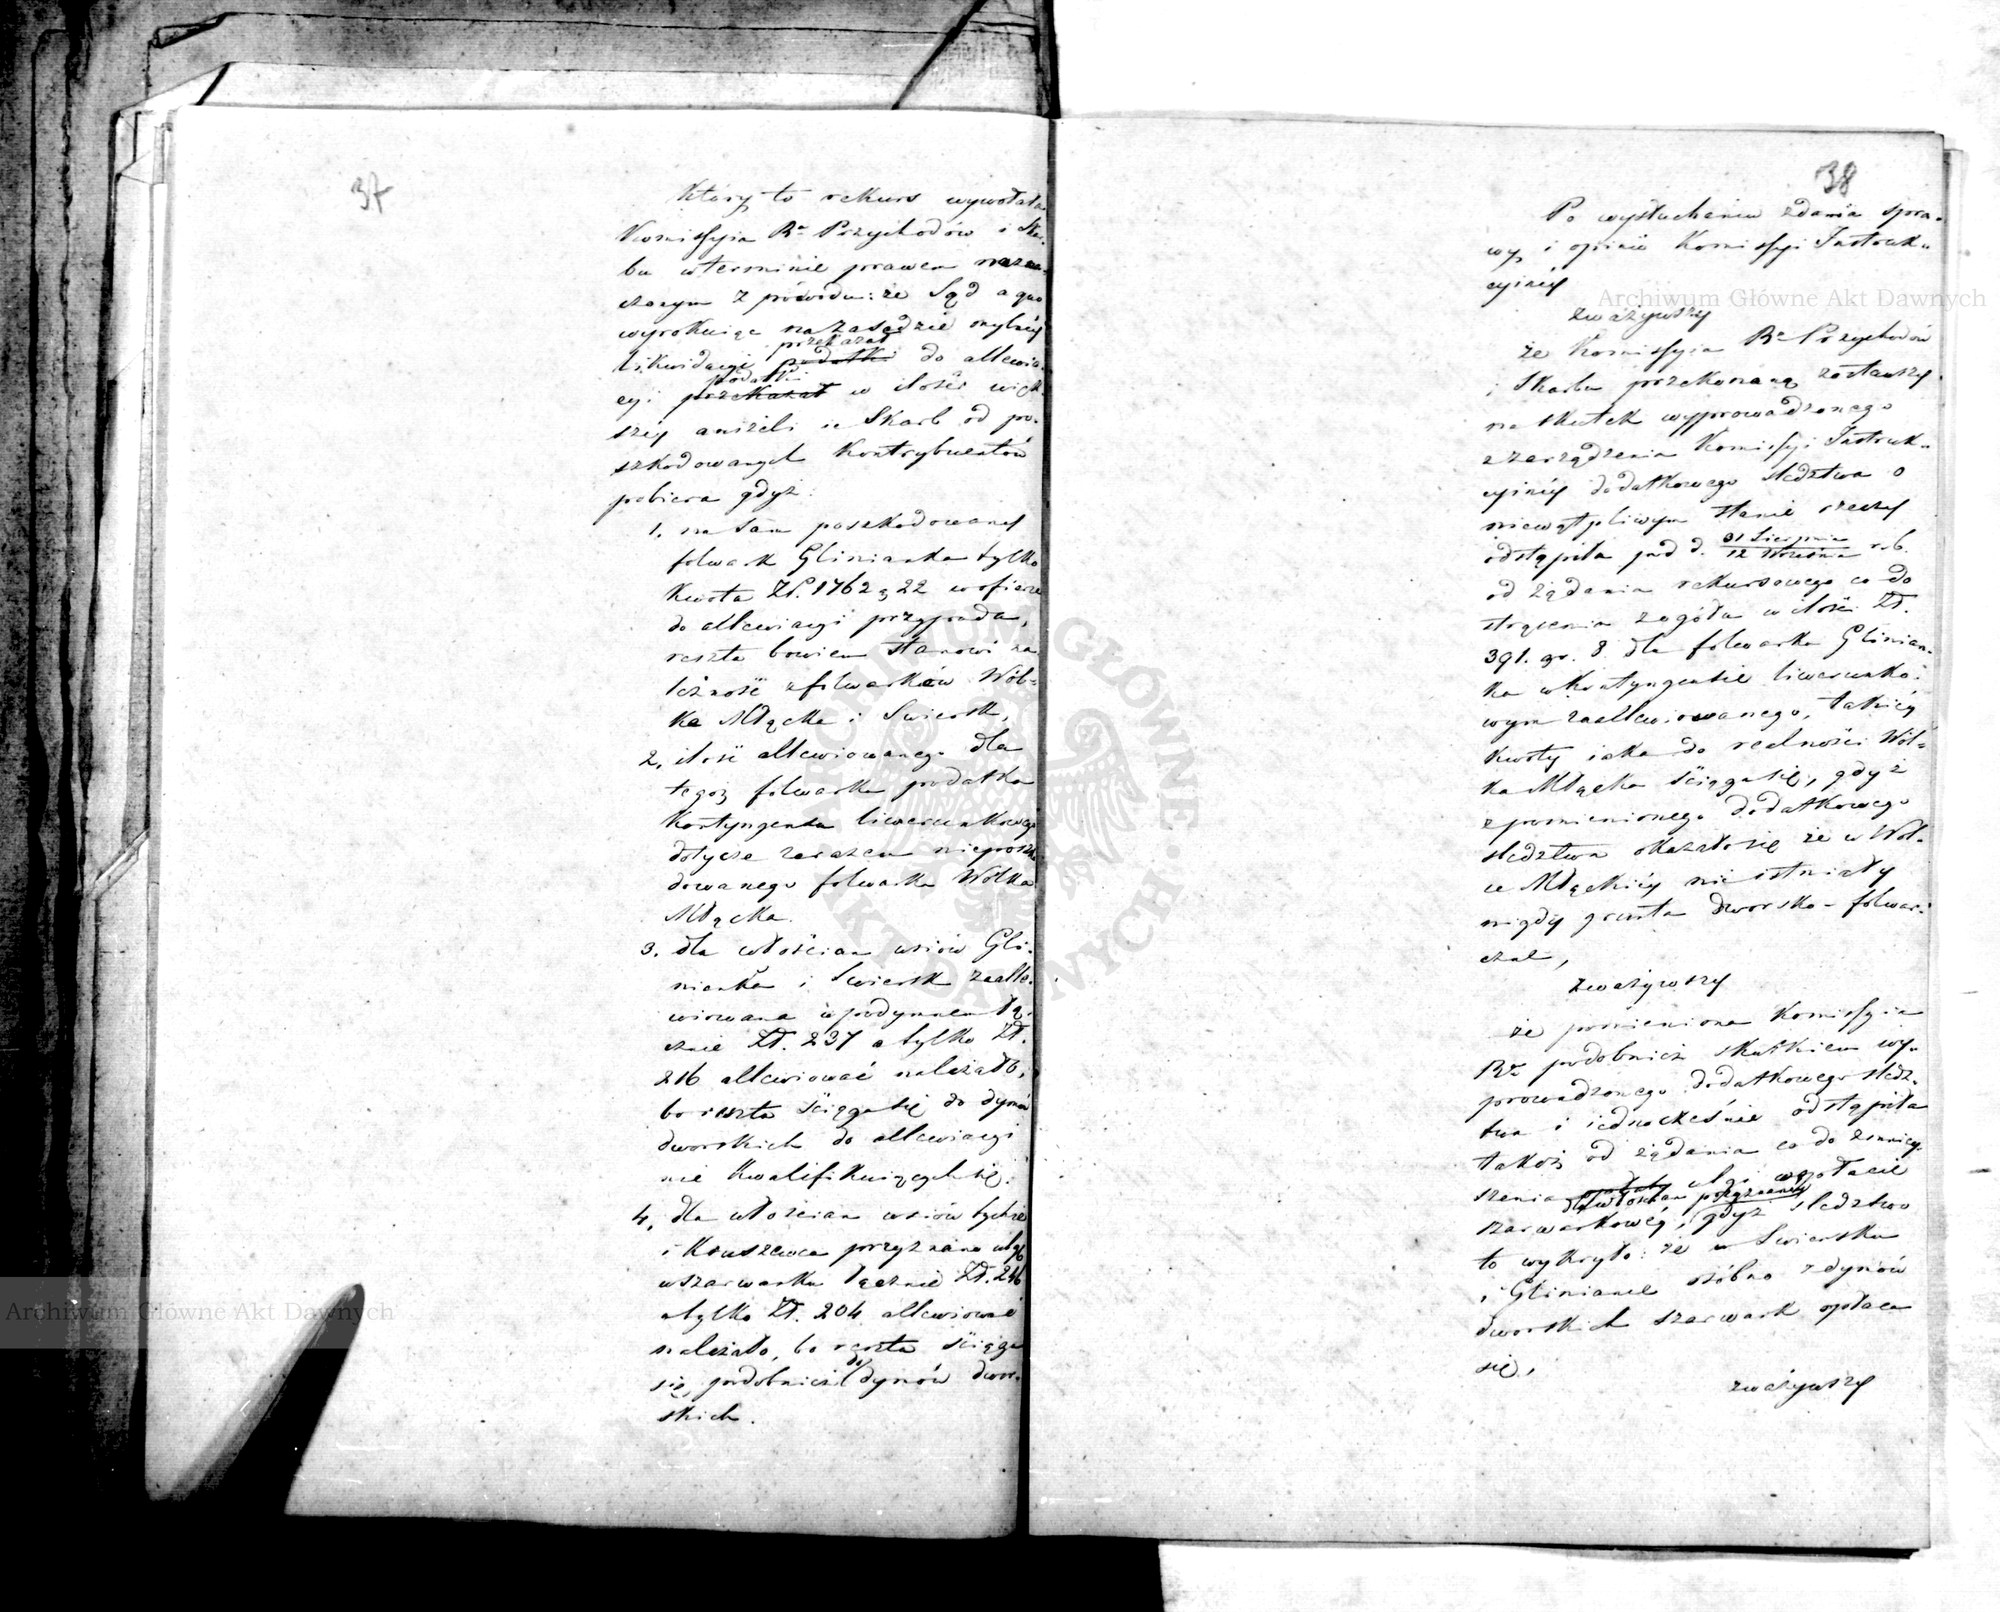 37
Który to rekurs wywołała
Kommissyia R. Przychodów i Skar-
bu w terminie prawem nazna-
czonym z powodu: że Sąd a quo
wyrokuiąc na zasadzie mylnéy
przekazał
likwidacyi podatki do allewia-
podatki
cyi przekazał w ilości więk-
széy aniżeli ie Skarb od po-
szkodowanych Kontrybuentów
pobiera gdyż:
1. na sam poszkodowany
folwark Glinianka tylko
Kwota Zł. 1762 g 22 w ofierze
do allewiacyi przypada,
reszta bowiem stanowi na
leżność z folwarków Wól-
ka Młącka i Swiersk,
2, ilość allewiowanego dla
tegoż folwarku podatku
Kontyngensu liwerunkowego
dotycze zarazem nieposzko
dowanego folwarku Wolka
Młącka.
3. dla włościan wsiów Gli-
nianka i Swiersk zaalle-
wiowana w podymnem łą-
cznie Zł. 237 a tylko Zł.
216 allewiować należało,
bo reszta ściąga się do dymów
dworskich do allewiacyi
nie Kwalifikuiących się.
4, dla włościan wsiów tychże
i Kruszewca przyznano ulgę
w szarwarku łącznie Zł. 246
a tylko Zł. 204 allewiować
należało, bo reszta ściąga
do
się podobnież dymów dwor-
skich.
38
Po wysłuchaniu zdania spra-
wy, i opinii Komissyi Instruk-
cyinéy
zważywszy
że Komissyia R. Przychodów
i Skarbu przekonaną zostawszy
na skutek wyprowadzonego
z zarządzenia Komissyi Instruk-
cyinéy dodatkowego śledztwa o
niewątpliwym stanie rzeczy
odstąpiła pod d. 31 Sierpnia / 12 Września r. b.
od żądania rekursowego co do
strącenia z ogółu w ilości Zł.
391. gr. 8 dla folwarku Glinian-
ka w Kontyngensie liwerunko-
wym zaallewiowanego, takiéy
Kwoty iaka do realności Wól-
ka Młącka ściąga się, gdyż
z pomienionego dodatkowego
śledztwa okazało się że w Wól-
ce Młąckiéy nie istniały
nigdy grunta dworsko-folwar-
czne,
zważywszy
że pomieniona Komissyia
Rz. podobnież skutkiem wy-
prowadzonego dodatkowego śledz-
twa i iednocześnie odstąpiła
takoż od żądania co do zmniey-
szenia ulgi w opłacie
dla włościan przyznanéy
szarwarkowéy, gdyż śledztwo
to wykryło: że w Swiersku
i Gliniance osóbno z dymów
dworskich szarwark opłaca
się,
zważywszy
Archiwum Główne Akt Dawnych
Archiwum Główne Akt Dawnych
ARCHIWUM GŁÓWNE AKT DAWNYCH